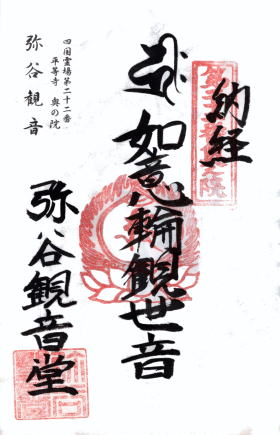 納経
如意輪観世音
弥谷観音堂
四国霊場第二十二番
平等寺 奥の院
弥谷観音